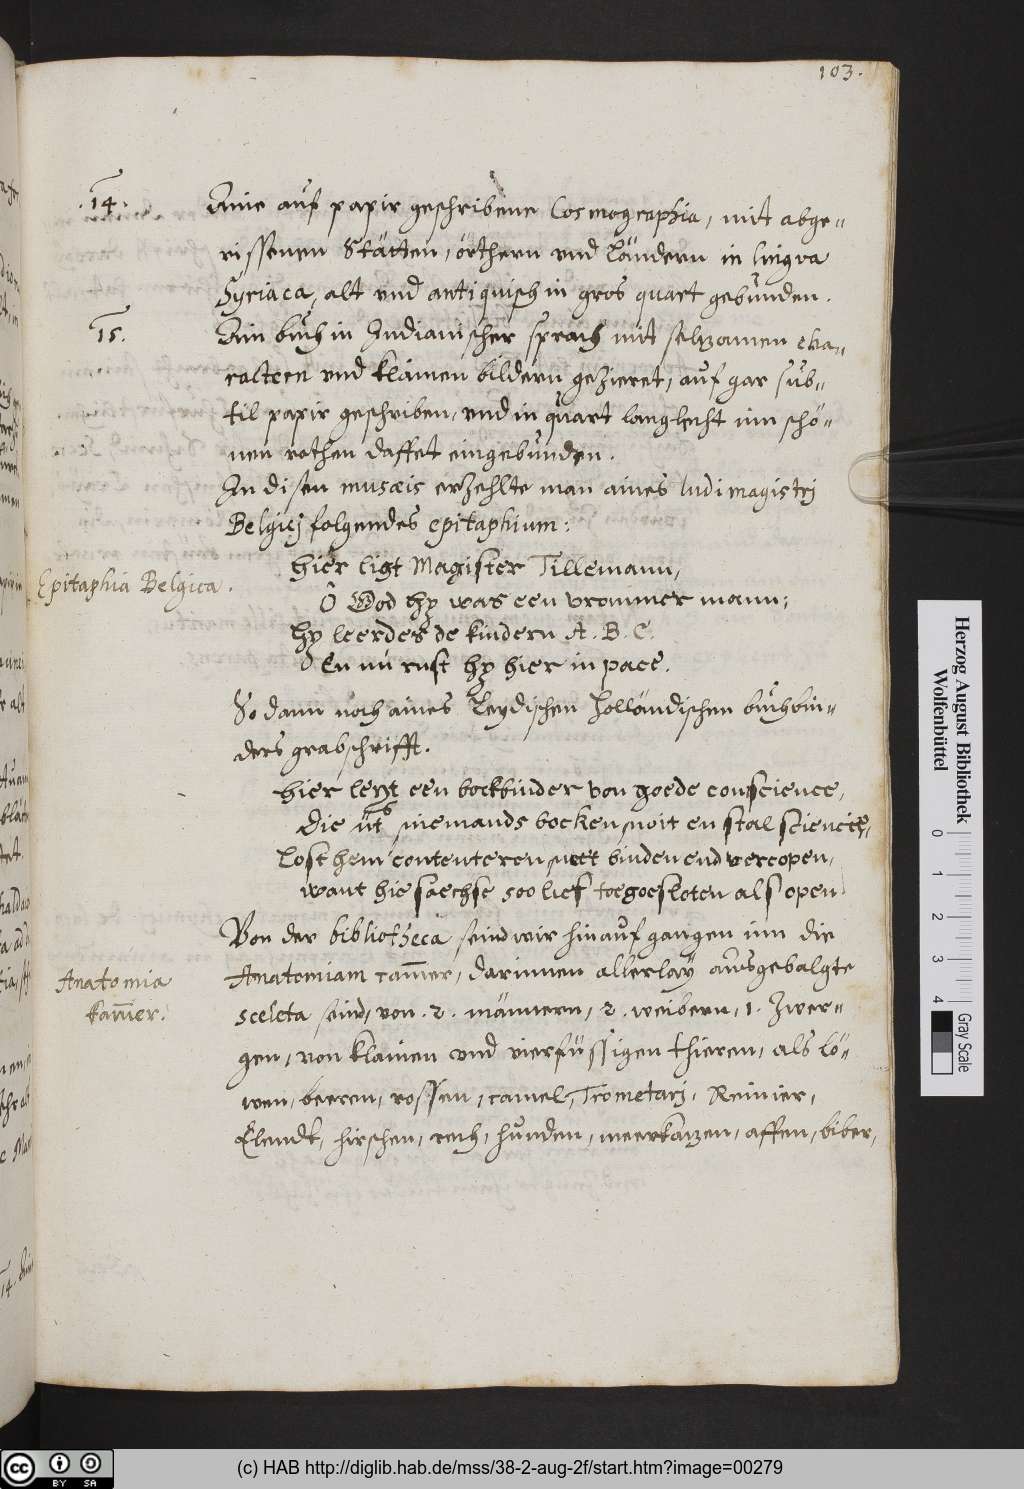 103.
.14. Aine auf papir geschribene Cosmographia, mit abge=
rissenen Stätten, örthern und Ländern in lingva
Syriaca, alt und antiquisch in gros quart gebunden.
15. Ain buch in Indianischer sprach mit seltzamen cha=
racteren und klainen bildern gezieret, auf gar sub=
til papir geschriben, und in quart langlecht inn schö=
nen rothen daffet eingebunden.
In disen musæis erzehlte man aines ludi magistrj
Belgicj folgendes epitaphium:
Epitaphia Belgica.
hier ligt Magister Tillemann,
Ô God hy was een vrommer mann;
hy leerdes de kindern A. B. C.
En nu rust hy hier in pace.
So dann noch aines Leydischen Holländischen buchbin=
ders grabschrifft.
hier leyt een bockbinder von goede conscience,
die niemands bocken noit en stal sciencie,
Lost hem contenteren met binden end vercopen,
want hie saechse soo lief toegoesloten als open
Von der bibliotheca seind wir hinauf gangen inn die
Anatomia
kam̅er.
Anatomiam cam̅er, darinnen allerlaÿ ausgebalgte
sceleta seind, von .2. männern, 2. weibern, 1. Zwer=
gen, von klainen und vierfüssigen thieren, als lö=
wen, beeren, rossen, camel, Trometarj, Reinier,
Elendt, hirschen, rech, hunden, meerkatzen, affen, biber,
Herzog August Bibliothek
Wolfenbüttel
0 1 2 3 4
Gray Scale
BY SA
(c) HAB http://diglib.hab.de/mss/38-2-aug-2f/start.htm?image=00279